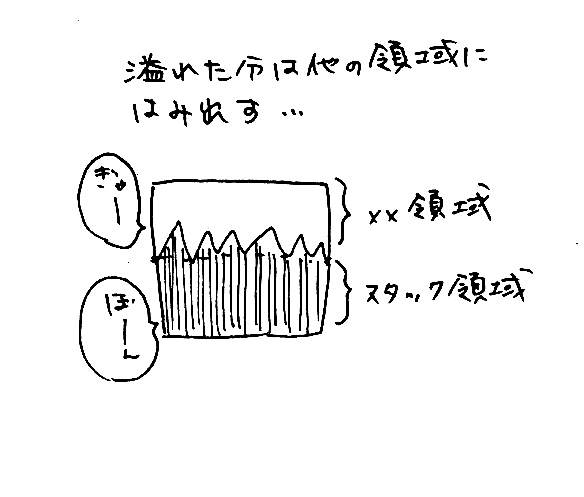 溢れた分は他の領域に
はみ出す…
きゅー
xx領域
スタック領域
ぼーん